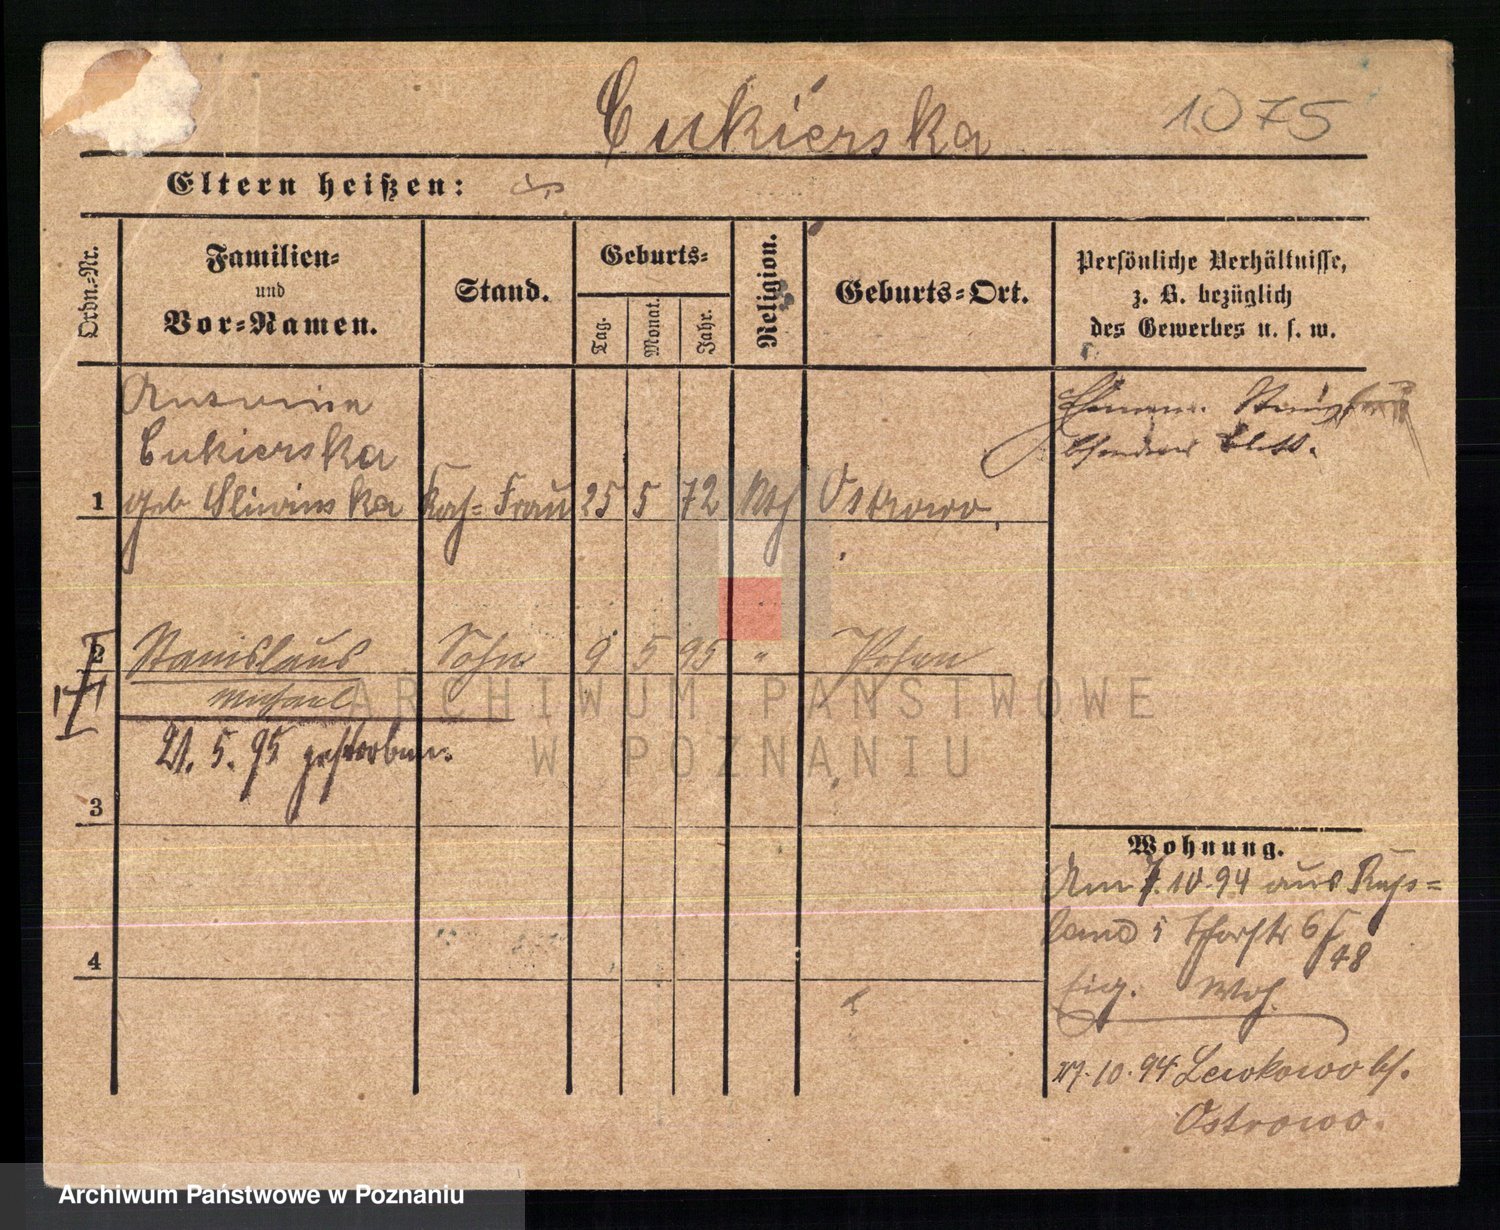 Cukierska 1075
Eltern heißen:
Ordn.-Nr.
Familien-
und
Vor-Namen.
Stand.
Geburts-
Tag.
Monat.
Jahr.
Religion.
Geburts-Ort.
Persönliche Verhältnisse,
z. B. bezüglich
des Gewerbes u. s. w.
Antonina
Cukierska
1 geb Sliwinska Koch-Frau 25 5 72 kth Ostrowo
Ehemann
besonderes Blatt.
2 Stanislaus Sohn 9 5 95 " Posen
Michael
21. 5. 95 gestorben.
3
Wohnung.
Am 7.10.94 aus Russ-
land
4
48
Eig. Woh.
27.10.94 Lewkowo bs.
Ostrowo.
ARCHIWUM PAŃSTWOWE
W POZNANIU
Archiwum Państwowe w Poznaniu